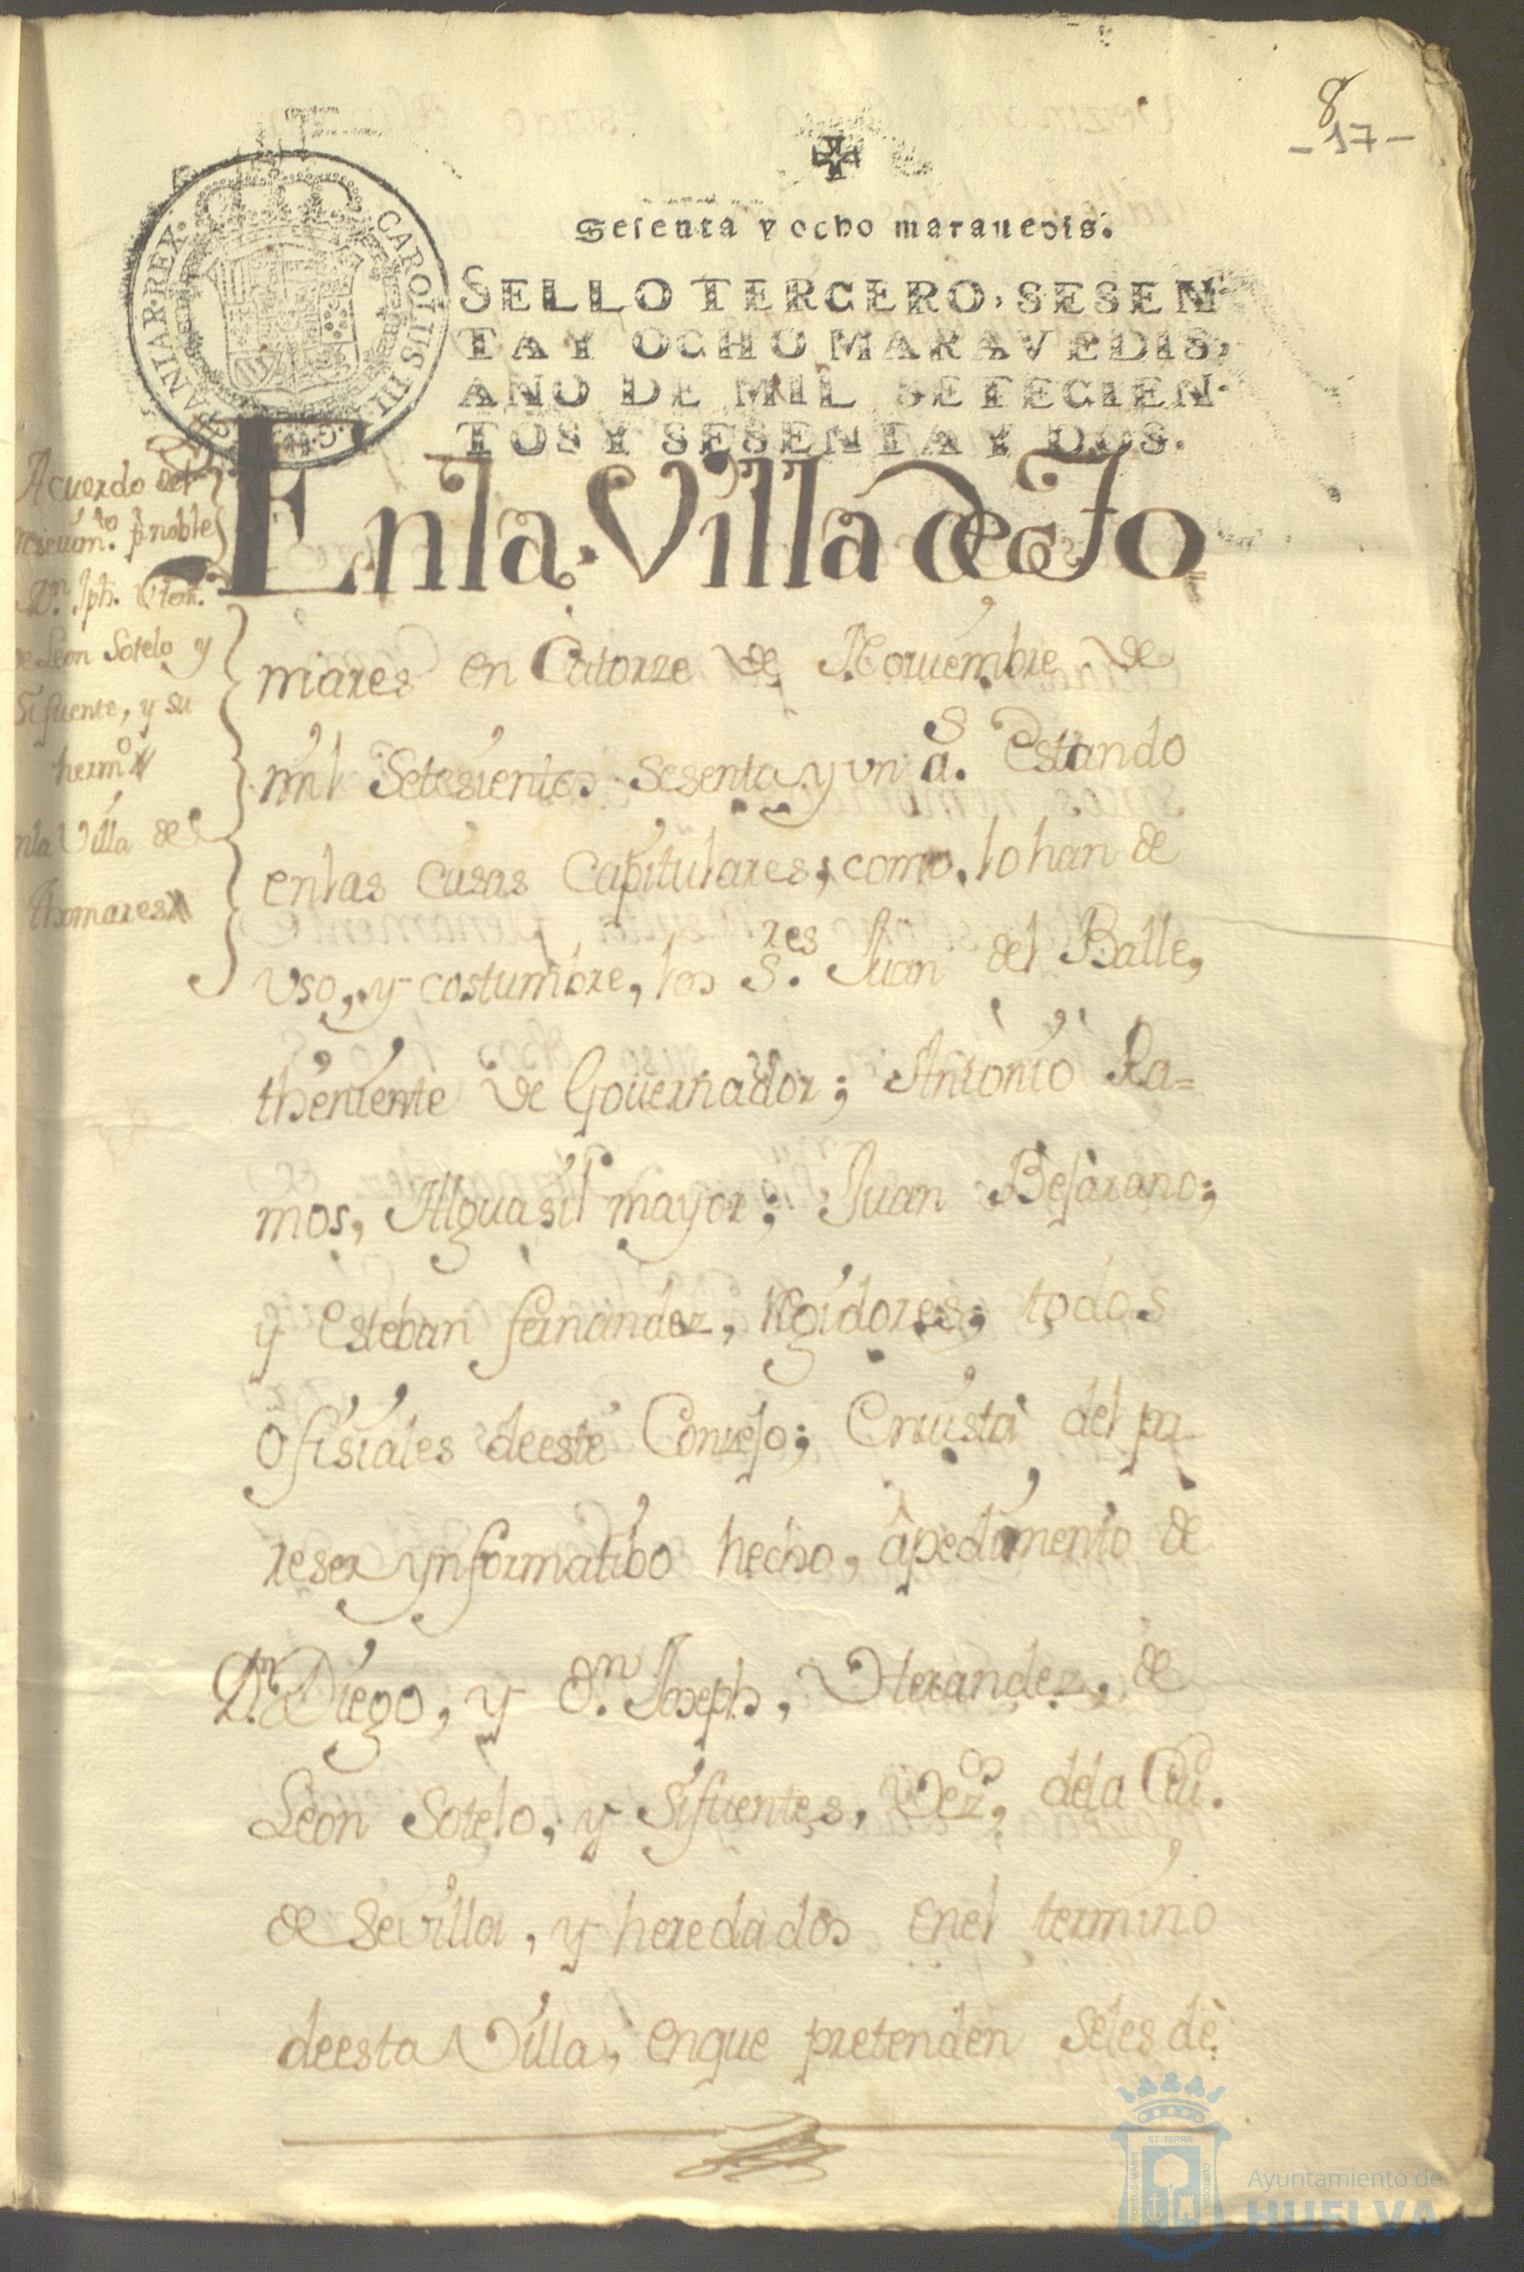 8
- 17 -
Sesenta y ocho marauedis.
SELLO TERCERO, SESEN
TA Y OCHO MARAVEDIS,
AÑO DE MIL SETECIEN-
TOS Y SESENTA Y DOS.
CAROLUS III
HISPANIAR·REX·
Acuerdo del
reseuim.to p.r noble
D.n Jph.
de Leon Sotelo y
Sifuente, y su
herm.o
enla Villa de
thomares
Enla Villa de To
mares en Catorze de Nouiembre de
mil Setesientos sesenta y vn a.s estando
enlas casas Capitulares, como lo han de
vso, y costumbre, los S.res Juan del Balle,
theniente de Gouernador; Antonio Ra=
mos, Alguasil mayor; Juan Bejarano;
y Esteban fernandez, Regidores; todos
ofisiales deeste Consejo; Enuista del pa-
reser ynformatibo hecho, apedimento de
D.n Diego, y D.n Joseph, Hernandez, de
Leon Sotelo, y Sifuentes, Vez.os dela Ciu.
de Sevilla, y heredados enel termino
deesta Villa, enque pretenden seles dè
PORTUS MARIS
ET TERRE
CUSTODIA
Ayuntamiento de
HUELVA